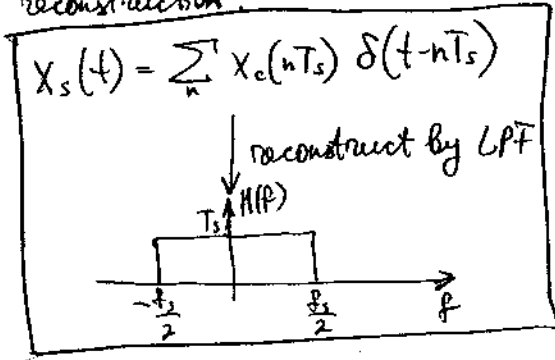 reconstruction.
X_s(t) = ∑_n X_c(nT_s) δ(t-nT_s)
reconstruct by LPF
H(f)
T_s
-f_s/2 f_s/2 f